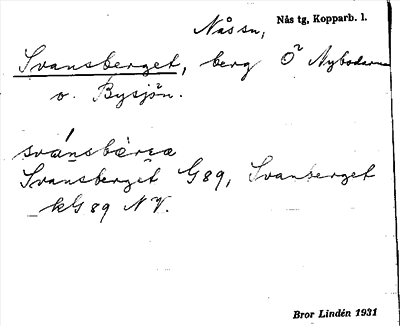 Nås sn, Nås tg, Kopparb. l.
Svansberget, berg Ö Nybodarna
o. Bysjön.
svánsbærɛa
Svansberget G89, Svanberget
kG 89 NV.
Bror Lindén 1931